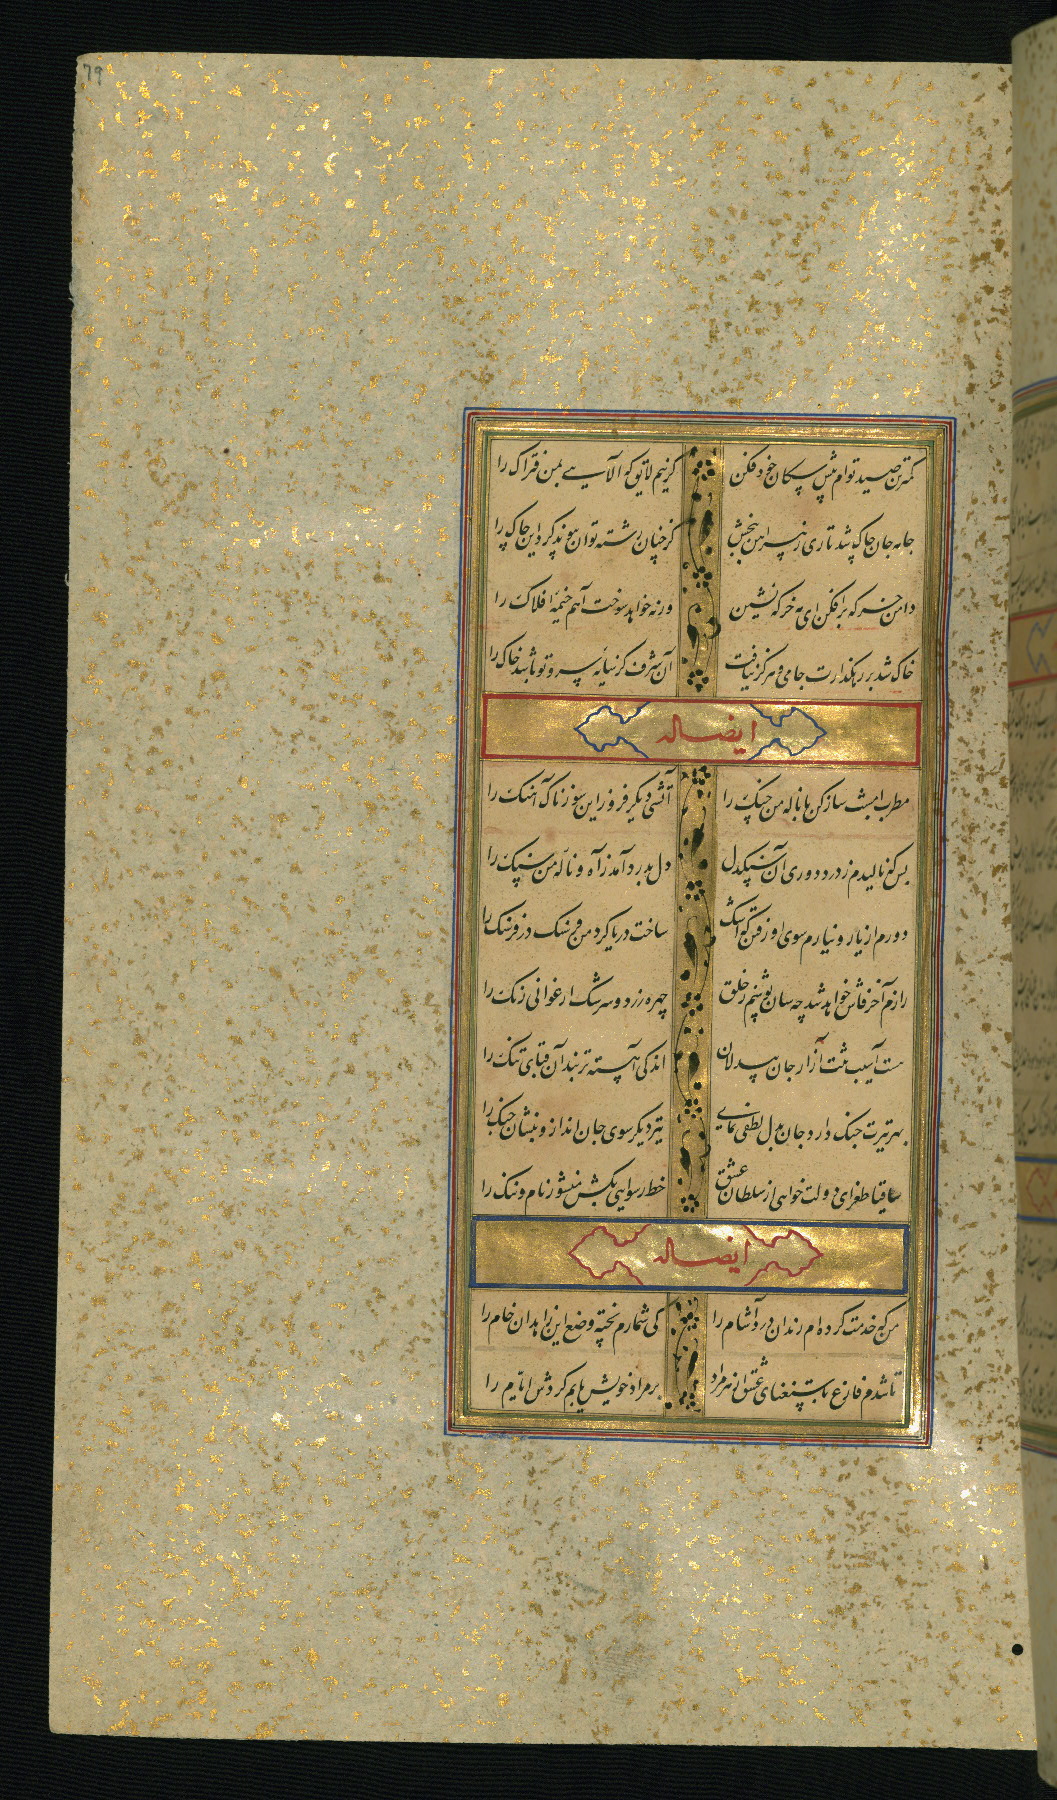 79
کمترین صید توام پیش سکان خود فکن
گر نیم لایق که آلایی بمن فتراک را
جامه جان چاک شد تاری ز پیراهن ببخش
کز چنان رشته توان پیوند کرد این چاک را
دامن خرکه برافکن ای مه خرکه نشین
ورنه خواهد سوخت آهم خیمه افلاک را
خاک شد بر رهکذارت جامی و هرکز نیافت
آن شرف کز سایه سرو تو باشد خاک را
ایضاله
مطربا بنشین ساز کن با ناله من چنک را
آتشی دیکر فروز این سوزناک آهنک را
بس که نالیدم ز درد دوری آن سنکدل
دل بدرد آمد ز آه و ناله من سنک را
دورم از یار و نیارم سوی او رفتن که اشک
ساخت دریا کرد من فرسنک در فرسنک را
رازم آخر فاش خواهد شد چه سان پوشم ز خلق
چهره زرد و سرشک ارغوانی رنک را
هست آسیب تنت آزار جان بیدلان
اندکی آهسته تر بند آن قبای تنک را
بهر تیرت جنک دارد جان بدل لطفی نمای
تیر دیکر سوی جان انداز و بنشان جنک را
ساقیا طغرای دولت خواهی از سلطان عشق
خط رسوایی بکش منشور نام و ننک را
ایضاله
من که خدمت کرده ام رندان درد آشام را
کی شمارم پخته وضع این زاهدان خام را
تا شدم فارغ باستغنای عشق از هر مراد
بر مراد خویش یابم کردش ایام را